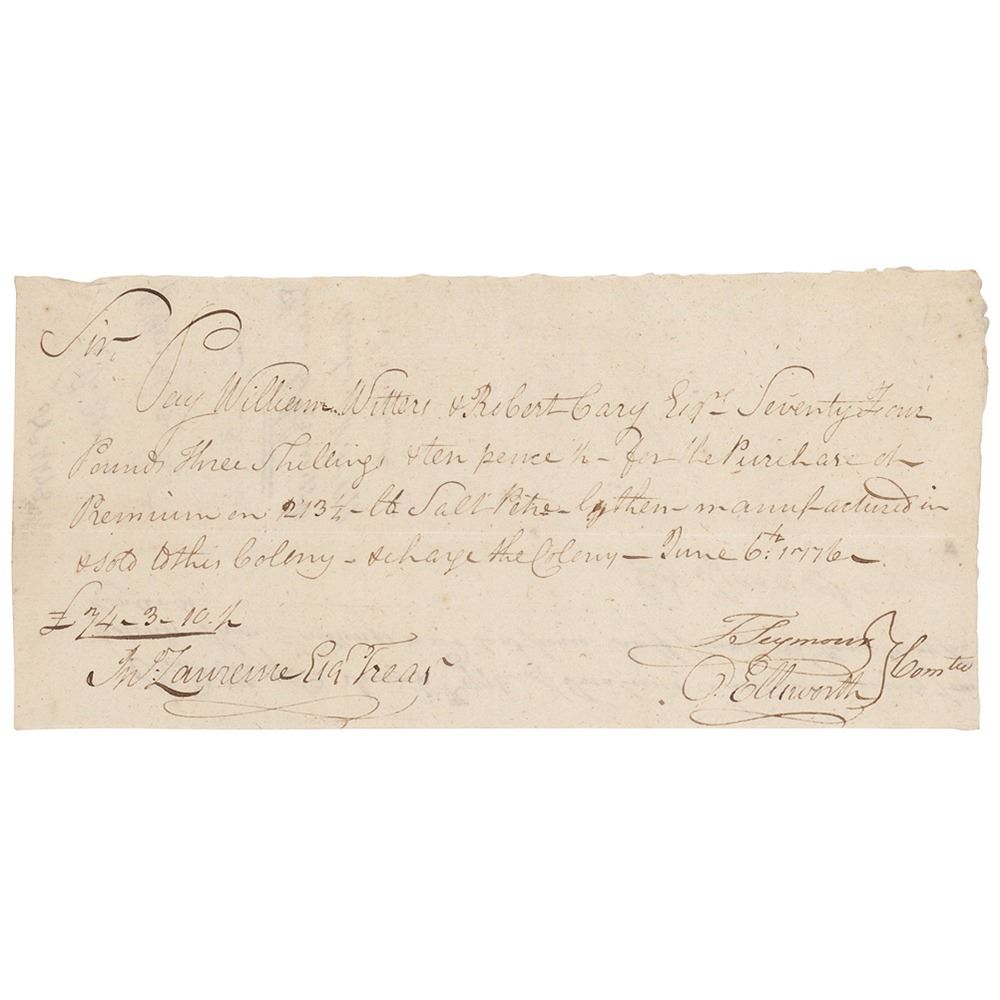 Sir,
Pay William Witters & Robert Cary Esqrs Seventy Four
Pounds three Shillings & ten pence for the Purchase &
Premium on 213½ lb Salt Petre by them manufactured in
& sold to this Colony - & charge the Colony - June 6th 1776 -
£74-3-10
T Seymour
Jno Lawrence Esq Treasr
O Ellsworth
} Comtee